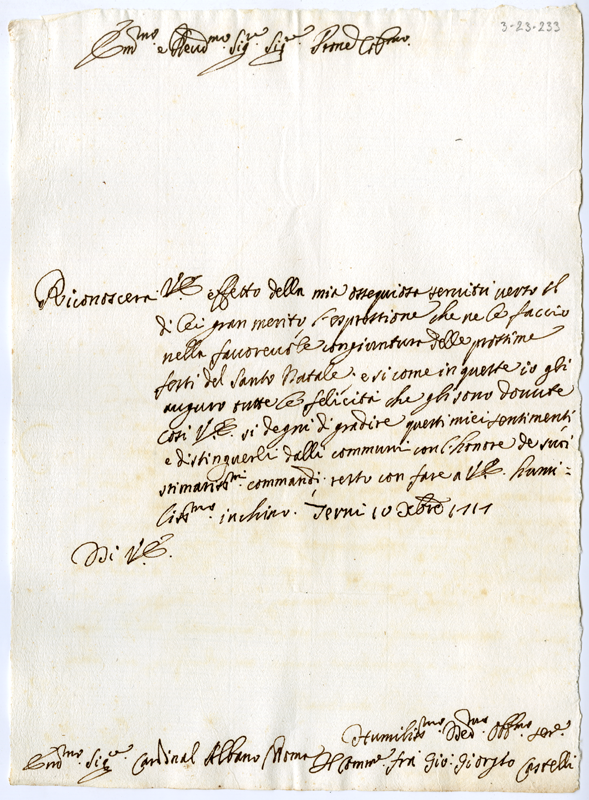 3-23-233
Em.mo e Reud.mo Sig.re Sig.re Prone Col.mo
Riconoscerà V.E. effetto della mia ossequiosa seruitù uerso il
di Lei gran merito l'espressione che ne Le faccio
nella fauoreuole congiuntura delle prossime
feste del Santo Natale; e si come in queste io gli
auguro tutte le felicità che gli sono douute
Così V.E. si degni di gradire questi miei sentimenti
e distinguerli dalli communi con l'honore de suoi
stimatiss.mi commandi; resto con fare a V.E. humi=
liss.mo inchino. Terni 10 Xbre 1711
Di V.E.
Humiliss.mo Deu.mo Obb.mo Ser.e
Em.mo Sig.re Cardinal Albano Roma Il Comm.re frà Gio: Giorgio Castelli